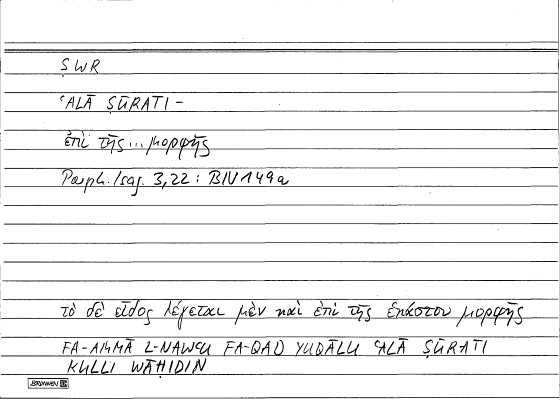 ṢWR
ʿALĀ ṢŪRATI –
ἐπὶ τῆς ... μορφῆς
Porph. Isag. 3,22 : BIN 149a
τὸ δὲ εἶδος λέγεται μὲν καὶ ἐπὶ τῆς ἑκάστου μορφῆς
FA-AMMĀ L-NAWʿU FA-QAD YUQĀLU ʿALĀ ṢŪRATI
KULLI WĀḤIDIN
BRUNNEN